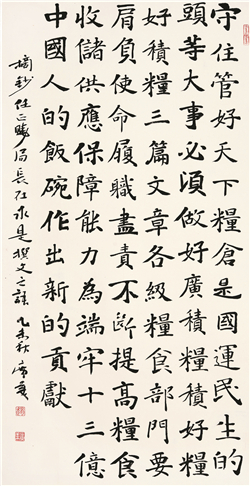 守住管好天下糧倉是國運民生的
頭等大事必須做好廣積糧積好糧
好積糧三篇文章各級糧食部門要
肩負使命履職盡責不斷提高糧食
收儲供應保障能力為端牢十三億
中國人的飯碗作出新的貢獻
摘鈔任正曉局長在求是撰文之語 乙未秋